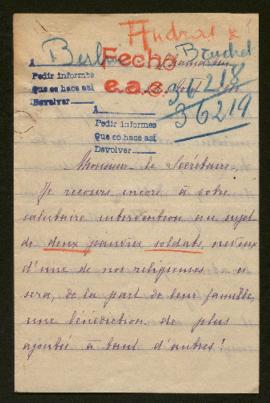 Andrat x
Berlin
Baudret
Fecho
A
Pedir informe
Que se hace así
e.a.c.
36218
Devolver
A
36219
Pedir informes
Que se hace así
Devolver
Monsieur le Secrétaire,
Je recours encore à votre
salutaire intervention au sujet
de deux pauvres soldats, neveux
d'une de nos religieuses. Ce
sera, de la part de leur famille,
une bénédiction de plus
ajoutée à tant d'autres !